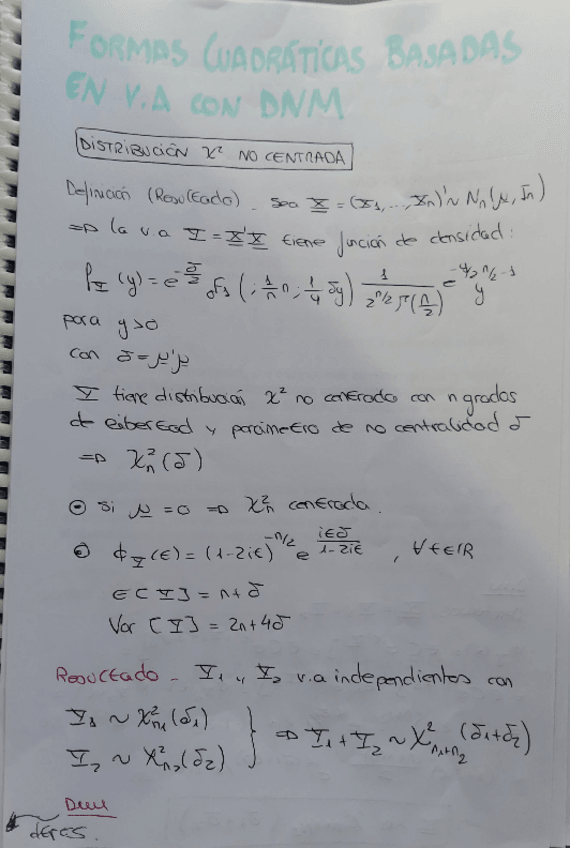 FORMAS CUADRÁTICAS BASADAS
EN V.A CON DNM
DISTRIBUCIÓN χ² NO CENTRADA
Definición (Resultado). Sea X = (X₁, ..., Xₙ)' ~ Nₙ(μ, Iₙ)
⇒ la v.a Y = X'X tiene función de densidad:
f_Y(y) = e^{-δ/2} ₀F₁(; 1/n n; 1/4 δy) 1/(2^{n/2} Γ(n/2)) e^{-y/2} y^{n/2-1}
para y>0
con δ = μ'μ
Y tiene distribución χ² no centrada con n grados
de libertad y parámetro de no centralidad δ
⇒ χ²ₙ(δ)
Si μ = 0 ⇒ χ²ₙ centrada.
ϕ_Y(t) = (1-2it)^{-n/2} e^{itδ/(1-2it)}, ∀t∈ℝ
E[Y] = n+δ
Var[Y] = 2n+4δ
Resultado - Y₁ y Y₂ v.a independientes con
Y₁ ~ χ²_{n₁}(δ₁)
Y₂ ~ χ²_{n₂}(δ₂) } ⇒ Y₁+Y₂ ~ χ²_{n₁+n₂}(δ₁+δ₂)
Dem
detrás.